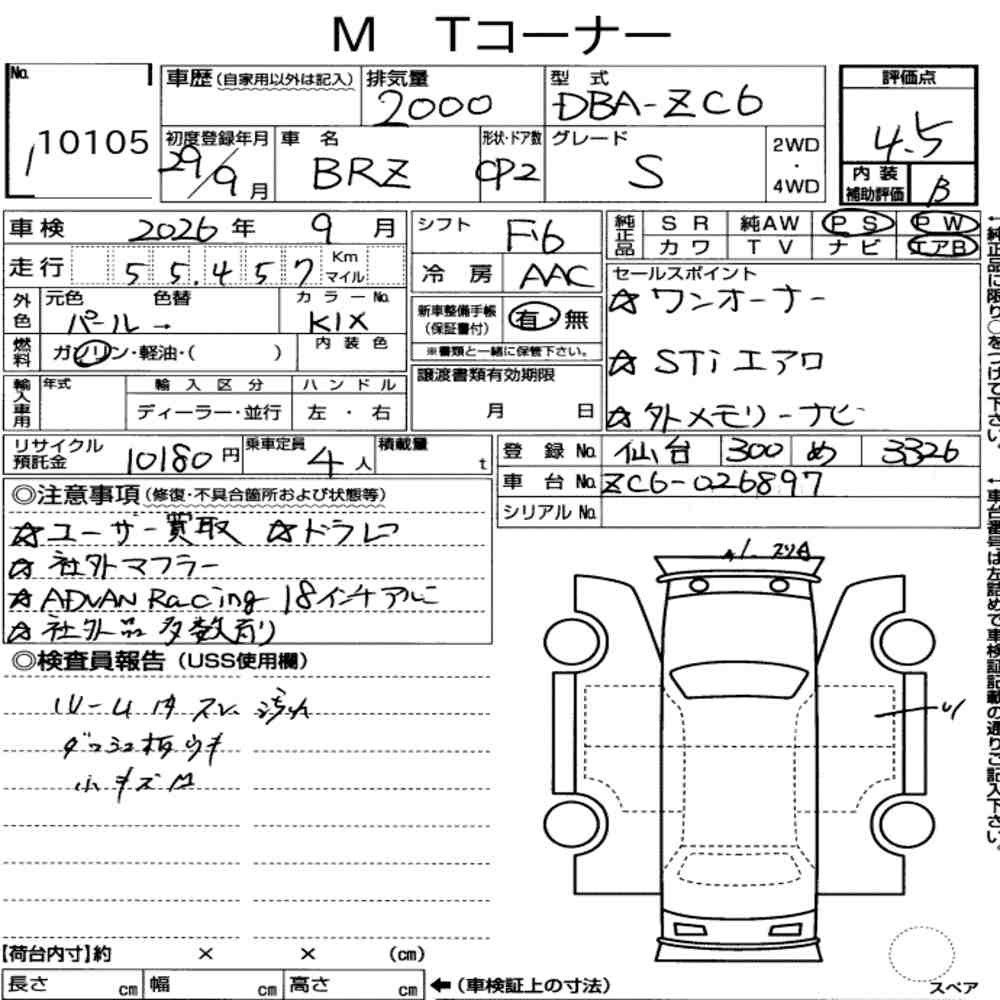 M Tコーナー
No. 1 10105
車歴(自家用以外は記入) 排気量 2000 型式 DBA-ZC6
初度登録年月 29/9月 車名 BRZ 形状・ドア数 CP2 グレード S 2WD・4WD
評価点 4.5
内装補助評価 B
車検 2026年 9月
走行 55,457 Km マイル
外色 元色 パール→ 色替 カラーNo. K1X
燃料 ガソリン・軽油・( ) 内装色
輸入車用 年式 輸入区分 ディーラー・並行 ハンドル 左・右
シフト F6
冷房 AAC
新車整備手帳(保証書付) 有・無
※書類と一緒に保管下さい。
譲渡書類有効期限 月 日
純正品 SR 純AW PS PW
カワ TV ナビ エアB
セールスポイント
☆ワンオーナー
☆STiエアロ
☆外メモリーナビ
←純正品に限り○をつけて下さい。
リサイクル預託金 10180円 乗車定員 4人 積載量 t
登録No. 仙台 300 め 3326
車台No. ZC6-026897
シリアルNo.
←車台番号は左詰めで車検証記載の通りご記入下さい。
◎注意事項(修復・不具合箇所および状態等)
☆ユーザー買取 ☆ドラレコ
☆社外マフラー
☆ADVAN Racing 18インチアルミ
☆社外品多数有り
◎検査員報告(USS使用欄)
ルーム内スレ 汚れ
ダッシュ板ウキ
小キズ凹
【荷台内寸】約 × × (cm)
長さ cm 幅 cm 高さ cm ←(車検証上の寸法)
スペア